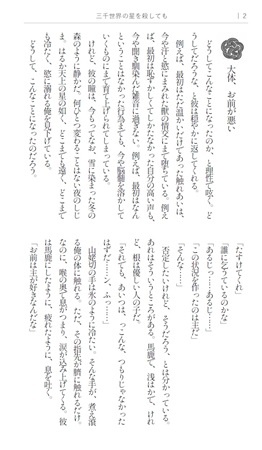 三千世界の星を殺しても
2
大体、お前が悪い
どうしてこんなことになったのか、と理性で呟く。どうしてだろうな、と彼は穏やかに返してくれる。
例えば、最初はただ温かいだけであった触れあいは、今や汗と慾にまみれた獣の情交にまで堕ちている。例えば、最初は恥ずかしくてしかたなかった自分の高い声も、今や聞き馴染んだ雑音に過ぎない。例えば、最初はなんということはなかった行為までも、今や脳髄を溶かしていくものにまで育て上げられてしまっている。
けれど、彼の瞳は、今もってなお、雪に染まった冬の森のように静かだ。何ひとつ変わることはない夜のしじま。はるか天上の星の如く、どこまでも遠く、どこまでも冷たく、慾に溺れる俺を見下げている。
どうして、こんなことになったのだろう。
「たすけてくれ」
「誰にどうしているのかな」
「あるじっ……あるじ……」
「この状況を作ったのは主だ」
「そんな……」
否定したいけれど、そうだろう、とは分かっている。あれはそういうところがある。馬鹿で、浅はかで、けれど、根は優しい人の子だ。
「それでも、あいつは、っこんな、つもりじゃなかったはずだ……ン、ふっ……」
山姥切の手は氷のように冷たい。そんな手が、煮え濆る俺の体に触れる。ただ、その指先が臍に触れるだけなのに、喉の奥で息がつまり、涙が込み上げてくる。彼は馬鹿にしたように、疲れたように、息を吐く。
「お前は主が好きなんだな」